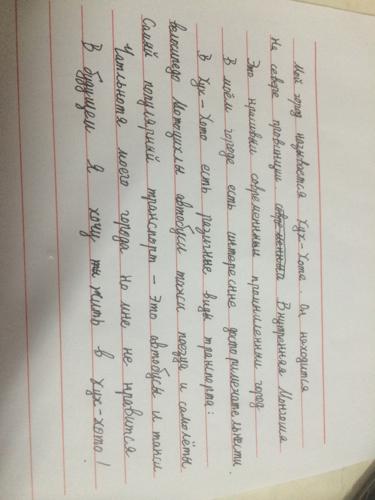 Мой город называется Хух-Хото. Он находится
На севере провинции Внутренняя Монголия
Это красивый современный промышленный город
В моём городе есть интересне достопримечательности.
В Хух-Хото есть различные виды транспорта:
велосипедо Мотоциклы автобусы такси поезда и самолёты
Самый популярный транспорт – Это автобусы и такси
моего города но мне не нравится
В будущем Я хочу жить в Хух-хото!